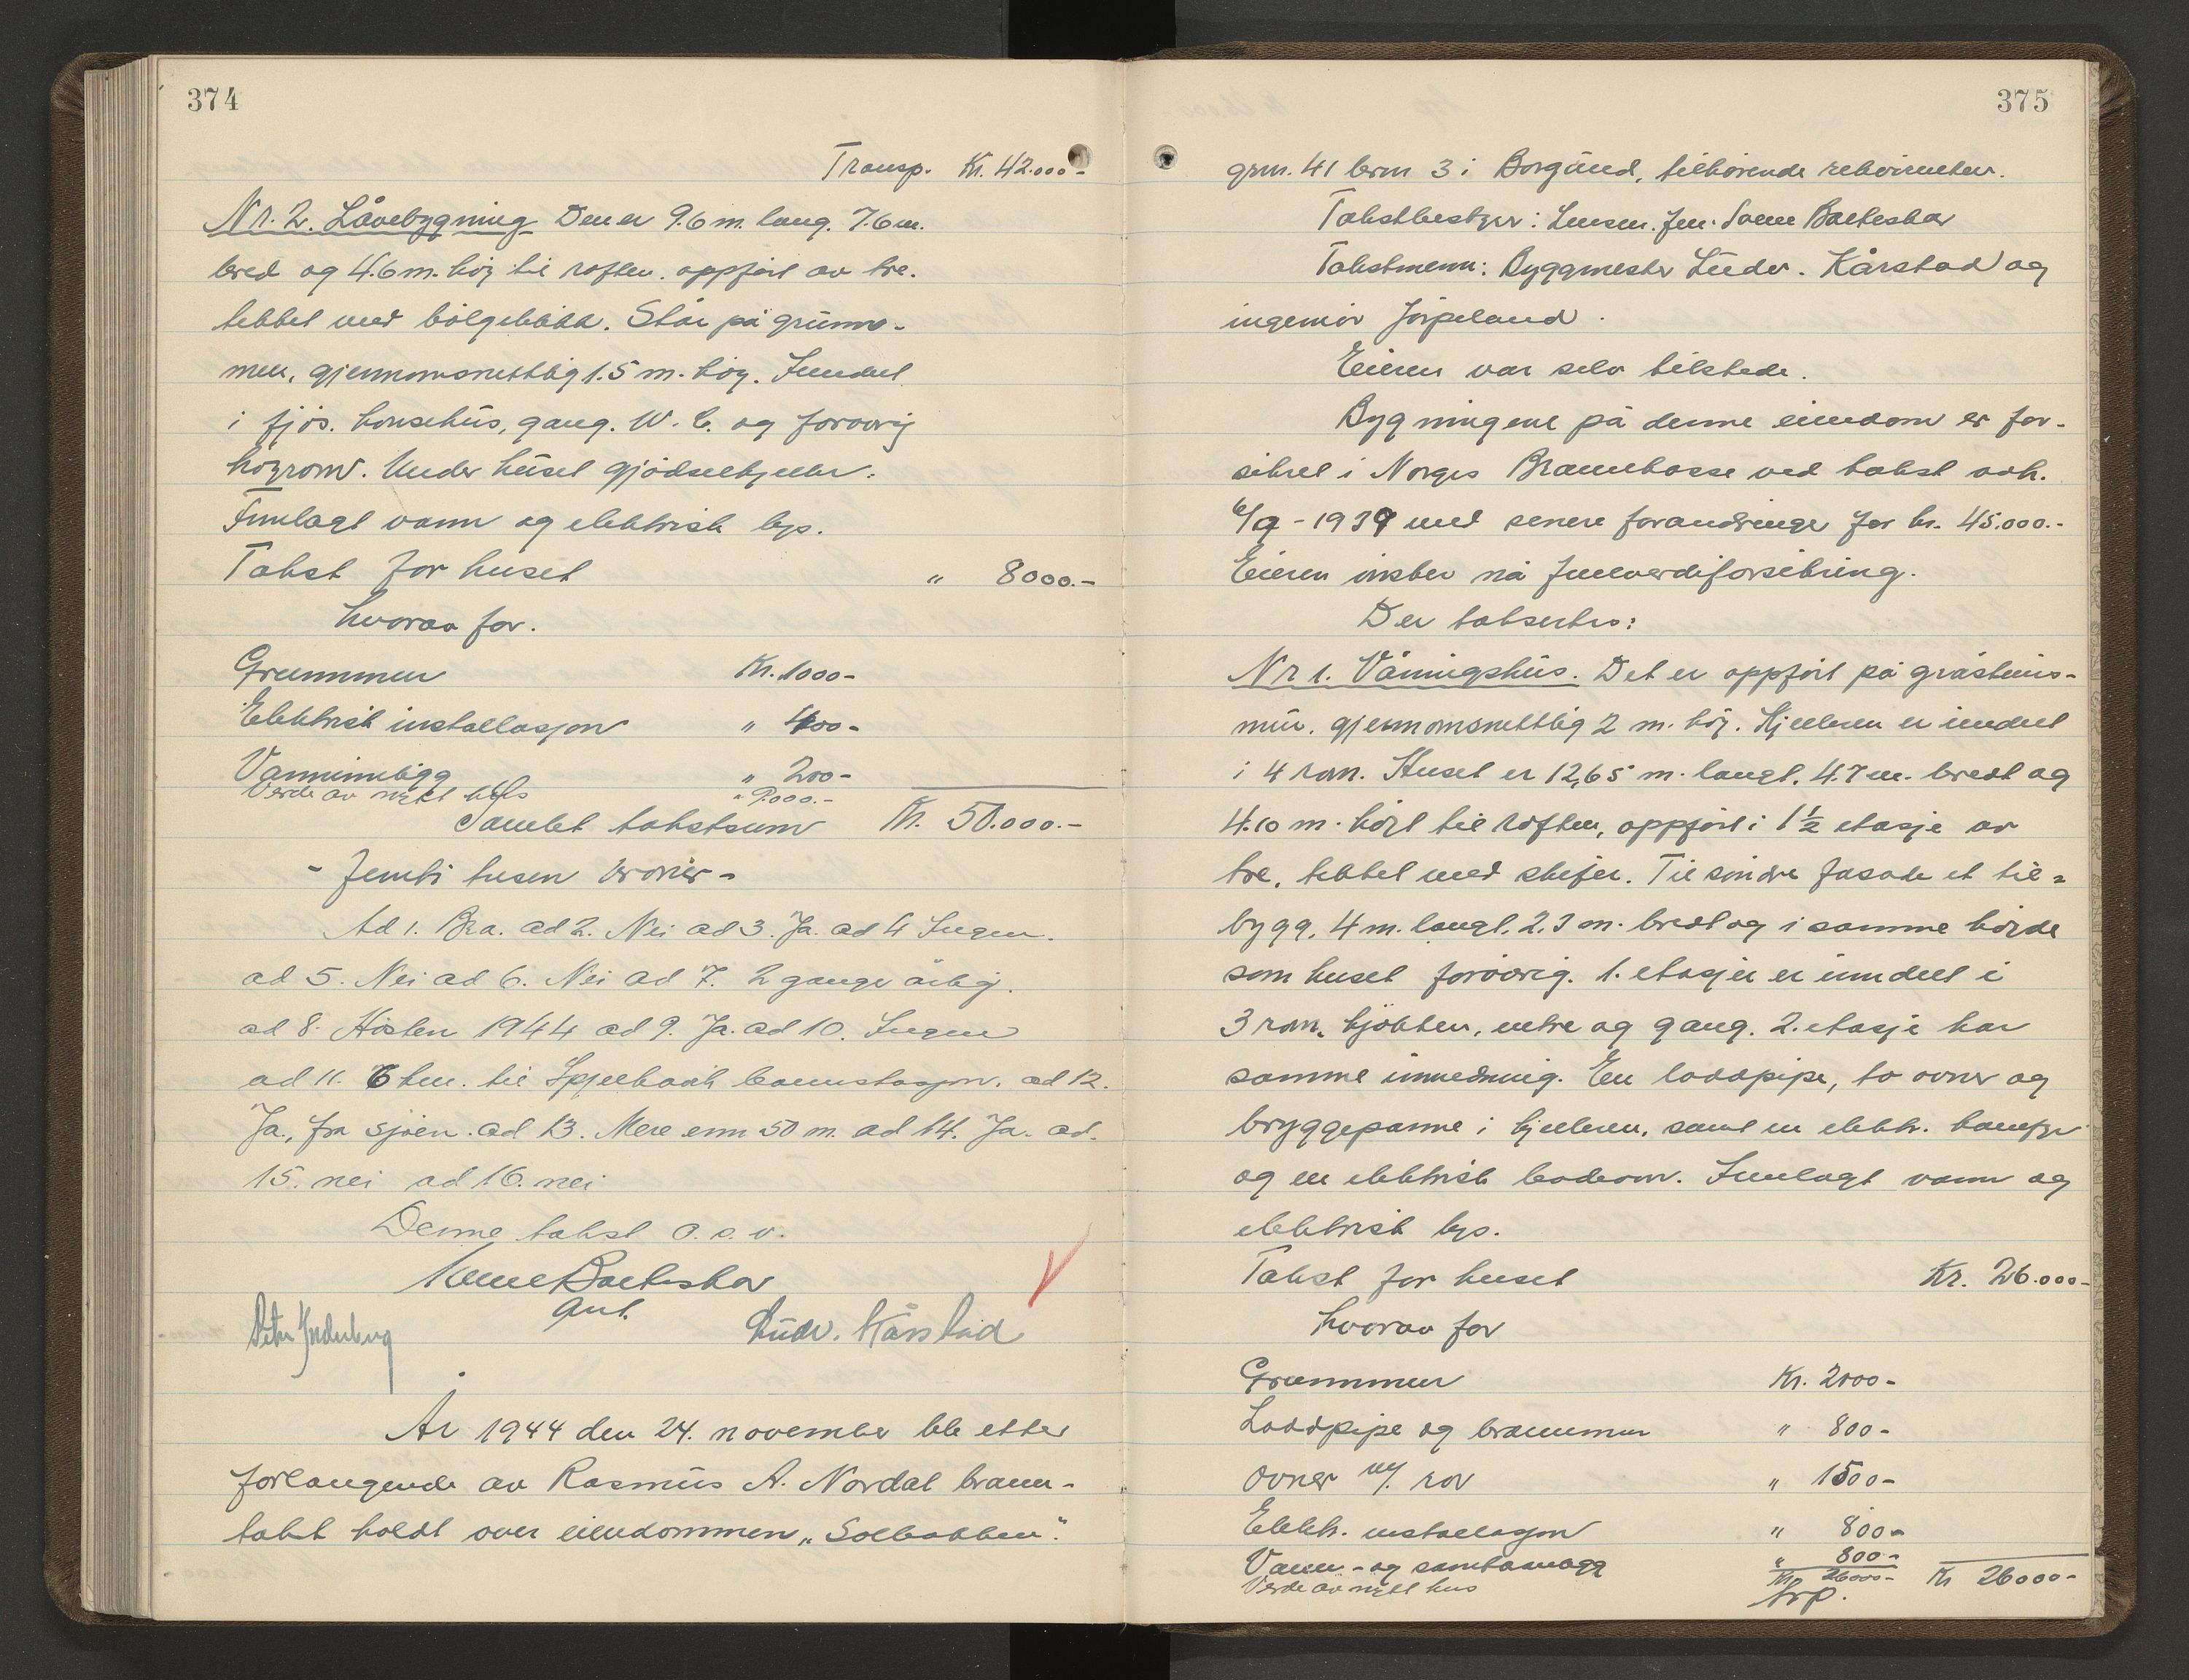 374
Transp. Kr. 42.000-
Nr. 2. Låvebygning Den er 9.6 m. lang. 7.6 m.
bred og 4.6 m. høy til røsten. oppført av tre.
tekket med bølgeblikk. Står på grunn-
mur, gjennomsnettlig 1.5 m. høy. Inndelt
i fjøs. hønsehus, gang. W.C. og forøvrig
høyrom. Under huset gjødselkjeller.
Innlagt vann og elektrisk lys.
Takst for huset " 8000.-
hvorav for.
Grunnmur Kr. 1000-
Elektrisk installasjon " 400-
Vanninnlegg " 200-
Verde av nytt hus " 9.000.-
Samlet takstsum Kr. 50.000.-
- Femti tusen kroner -
Ad 1. Bra. ad 2. Nei ad 3. Ja. ad 4 Ingen.
ad 5. Nei ad 6. Nei ad 7. 2 gange årlig.
ad 8. Høsten 1944 ad 9. Ja. ad 10. Ingen
ad 11. 6 km. til Spjelkavik brannstasjon. ad 12.
Ja., fra sjøen. ad 13. Mere enn 50 m. ad 14. Ja. ad.
15. nei ad 16. nei
Denne takst o.s.v.
Ludv. Kårstad
År 1944 den 24. november ble etter
forlangende av Rasmus A. Nordal brann-
takst holdt over eiendommen „Solbakken".
375
grn. 41 brn 3 i Borgund, tilhørende rekvirenten.
Takstbestyrer: Lensm. fm.
Takstmenn: Byggmester Ludv. Kårstad og
ingeniør Jørpeland.
Eieren var selv tilstede.
Bygningene på denne eiendom er for-
sikret i Norges Brannkasse ved takst avh.
6/9 - 1939 med senere forandringer for kr. 45.000.-
Eieren ønsker nå fullverdiforsikring.
Der takseres:
Nr 1. Våningshus. Det er oppført på gråsteins-
mur, gjennomsnettlig 2 m. høy. Kjelleren er inndelt
i 4 rom. Huset er 12,65 m. langt. 4.7 m. bredt og
4.10 m. høyt til røsten, oppført i 1½ etasje av
tre, tekket med skifer. Til søndre fasade et til-
bygg, 4 m. langt, 2.3 m. bredt og i samme høyde
som huset forøvrig. 1. etasje er inndelt i
3 rom, kjøkken, entre og gang. 2. etasje har
samme innredning. En loddpipe, to ovner og
bryggepanne i kjelleren, samt en elektr. komfyr
og en elektrisk badeovn. Innlagt vann og
elektrisk lys.
Takst for huset Kr. 26.000-
hvorav for
Grunnmur Kr. 2000-
Loddpipe og brannmur " 800-
Ovner m/. rør " 1500-
Elektr. installasjon " 800-
Vann- og sanitæranlegg " 800-
Verde av nytt hus Kr. 26000- Kr 26000-
trp.